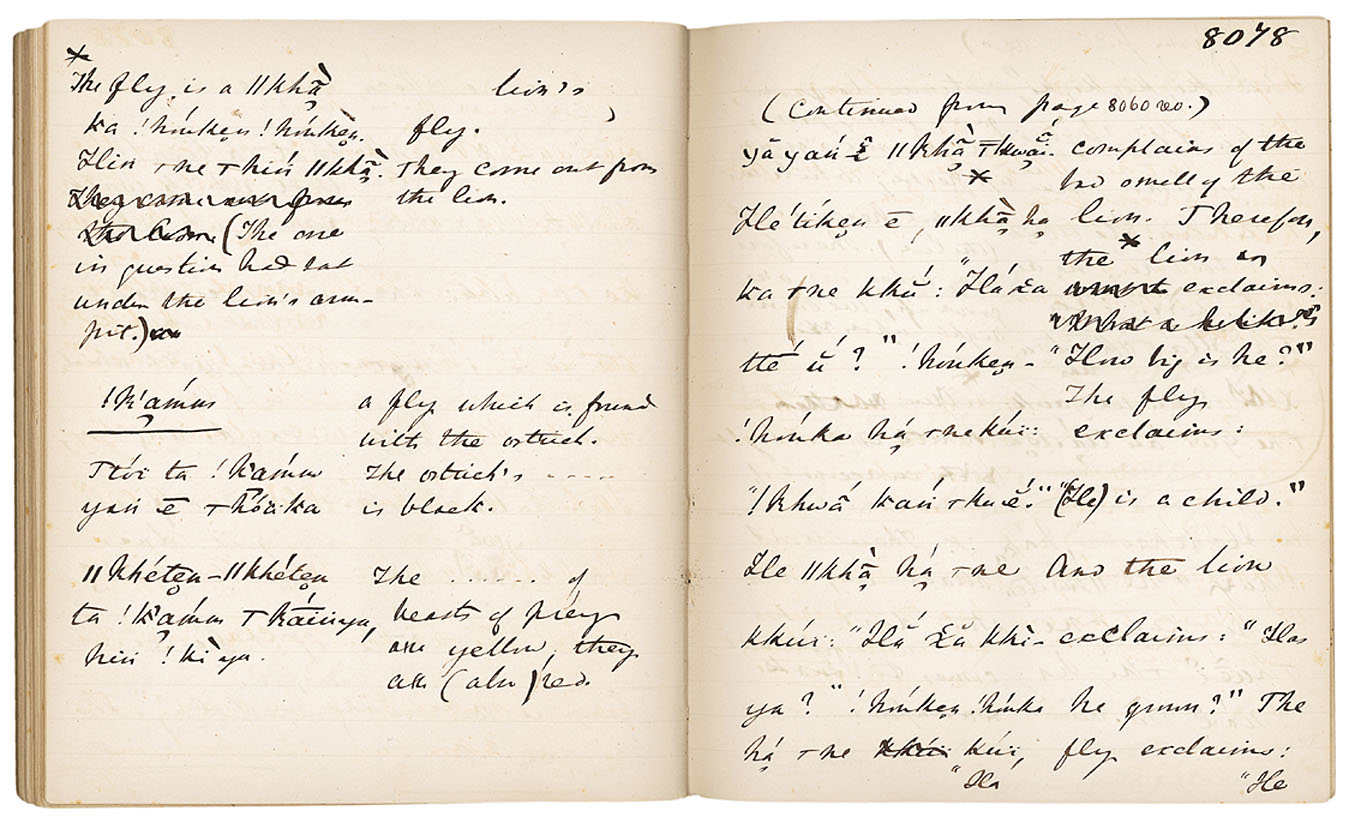 The fly is a ǁkhā̀ lion's
ka !hóuken !hóuken. fly.
Hin ꞇne ꞇhiń ǁkhā̀. They come out from
They come out from the lion.
the lion. (The one
in question had sat
under the lion's arm-
pit.)
!k'ámus a fly which is found
with the ostrich.
Ttóï ta !kámus The ostrich's ----
yań ē ꞇhóäka is black.
ǁkhéten-ǁkhéten The ...... of
ta !kámus beasts of prey
are yellow, they
hiń !kì ya. are (also) red.
8078
(Continued from page 8060 vo.)
ǁkhā̀ complains of the
bad smell of the
Hé tíken ē, ǁkhā̀ ha lion. Therefore,
the lion
ka ꞇne kkŭ́: "Há xa exclaims:
tté ú?" !hóuken- "How big is he?"
The fly
!hóuka há ꞇne kúï: exclaims:
"!khwā́ kań ꞇkuḗ." "(He) is a child."
He ǁkhā̀ há ꞇne And the lion
kkúï: "Hắ xă kkì- exclaims: "Has
ya?" !hóuken !hóuka he grown?" The
há ꞇne kúï, fly exclaims:
"Há "He